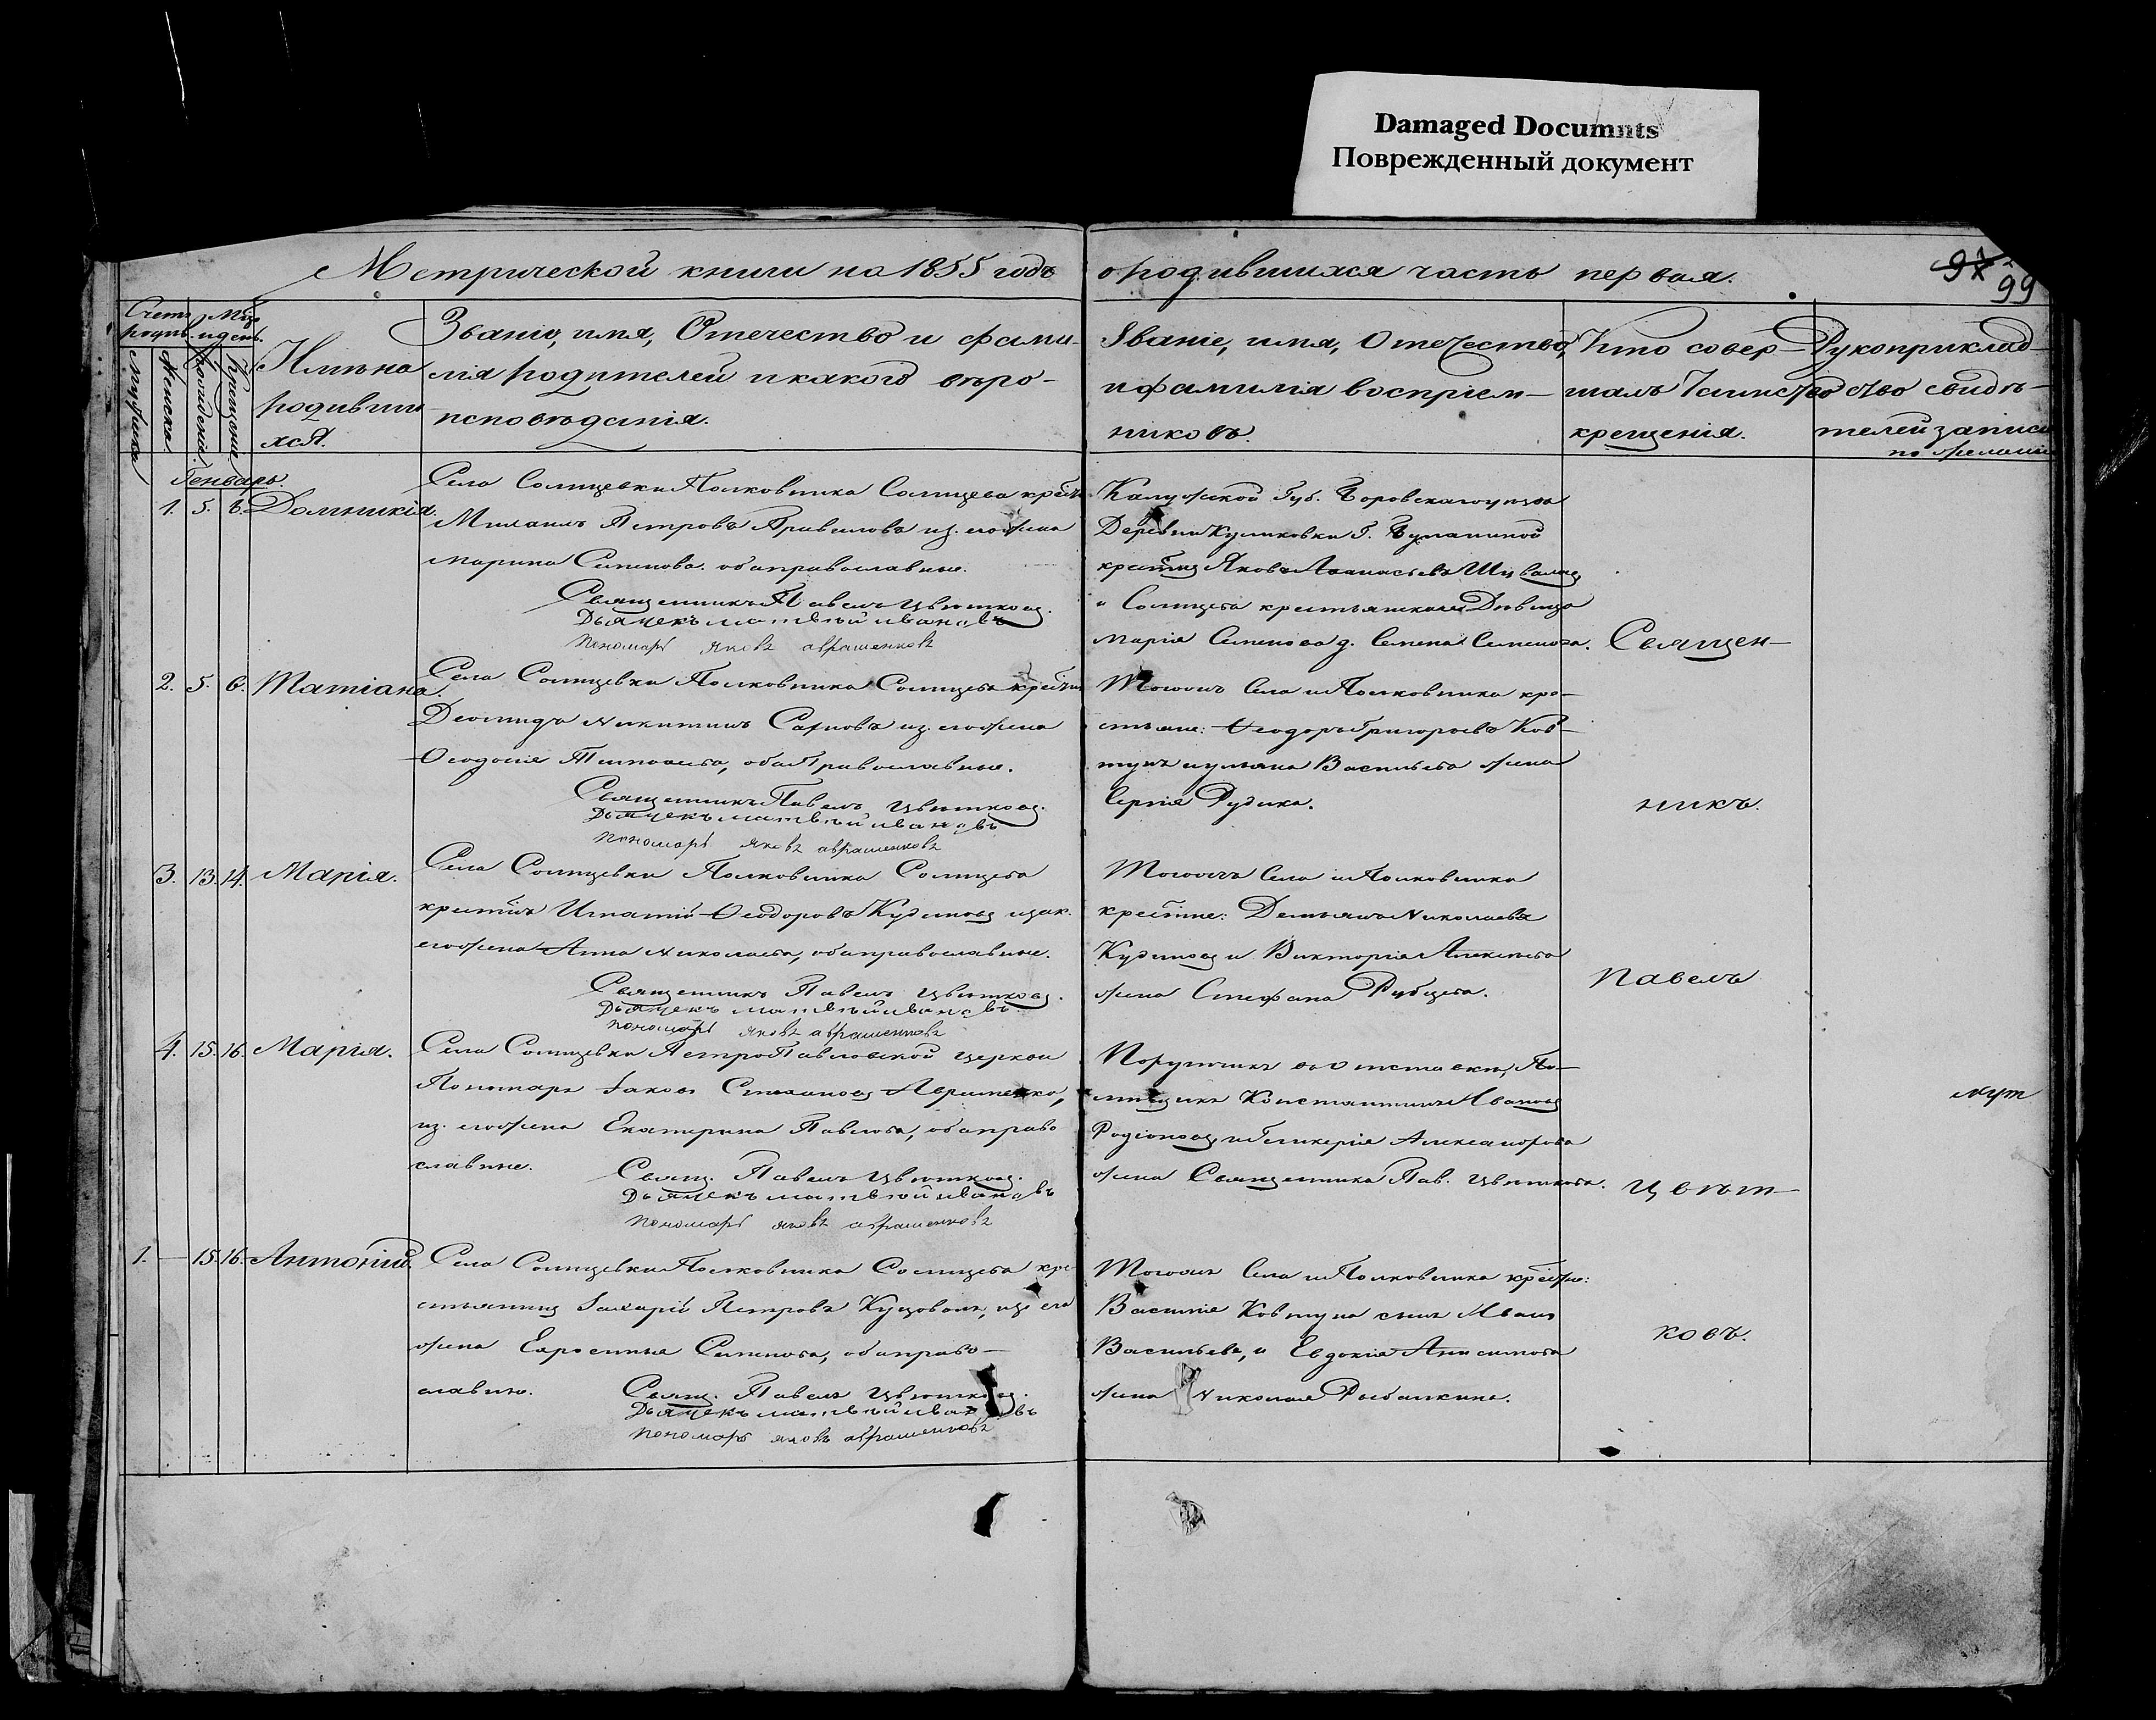 Damaged Documnts
Поврежденный документ
Метрической книги на 1855 годъ
о родившихся часть первая.
97
99
Счетъ родив.
Мѣс. и день.
Мужска
Женска.
рожденія.
Крещенія.
Имѣна
родивши
хся.
Званіе, имя, Отечество и фами-
лія родителей и какого вѣро-
исповѣданія.
Званіе, имя, Отечество,
и фамилія воспріем-
никовъ.
Кто совер-
шалъ таинство
крещенія.
Рукоприклад-
ство свидѣ-
телей записи
по желанію
Генварь.
1. 5. 6. Домникія.
Села Солнцевки Полковника Солнцева крест.
Михаилъ Петровъ Правилова из. его жена
Марина Семенова. оба православные.
Священникъ Павелъ Цвѣтковъ.
Дьячекъ матвѣй ивановъ
пономарь яковъ авраменковъ
Калужской Губ. Боровскаго уѣзда
Деревни Куликовки Г.
крестн. Яковъ Аѳанасьевъ
и Солнцева крестьянская Дѣвица
Марія Семенова д. Семена Семенова.
2. 5. 6. Татіана.
Села Солнцевки Полковника Солнцева крестн.
Деомидъ Никитинъ из. его жена
Ѳеодосія оба Православные.
Священникъ Павелъ Цвѣтковъ.
Дьячекъ матвѣй ивановъ
пономарь яковъ авраменковъ
Тогожъ Села и Полковника кре-
стьяне: Ѳеодоръ Григорьевъ Ков-
тунъ Васильева жена
Сергія Рудика.
3. 13. 14. Марія.
Села Солнцевки Полковника Солнцева
крестн. Игнатій Ѳеодоровъ Кудиновъ и зак.
его жена Анна Николаева, оба православные.
Священникъ Павелъ Цвѣтковъ.
Дьячекъ матвѣй ивановъ
пономарь яковъ авраменковъ
Тогожъ Села и Полковника
крестне: Демьянъ Николаевъ
Кудиновъ и Викторія Алексѣева
жена Стефана Рубцева.
4. 15. 16. Марія.
Села Солнцевки Петропавловской церкви
Пономарь Іаковъ Стефановъ Авраменко,
из. его жена Екатерина Павлова, оба право
славные.
Свящ. Павелъ Цвѣтковъ.
Дьячекъ матвѣй ивановъ
пономарь яковъ авраменковъ
Поручикъ въ отставкѣ, По-
мѣщикъ Константинъ Ивановъ
Родіоновъ, и Гликерія Александрова
жена Священника Пав. Цвѣткова.
1. — 15. 16. Антоній.
Села Солнцевки Полковника Солнцева кре
стьянинъ Захарій Петровъ из его
жена Евросинія Семенова, оба право-
славные.
Свящ. Павелъ Цвѣтковъ.
Дьячекъ матвѣй ивановъ
пономарь яковъ авраменковъ
Тогожъ Села и Полковника крестне:
Василія Ковтуна сынъ Иванъ
Васильевъ, и Евдокія Анисимова
жена Николая Рыбалкина.
Священ-
никъ.
Павелъ
Цвѣт-
ковъ.